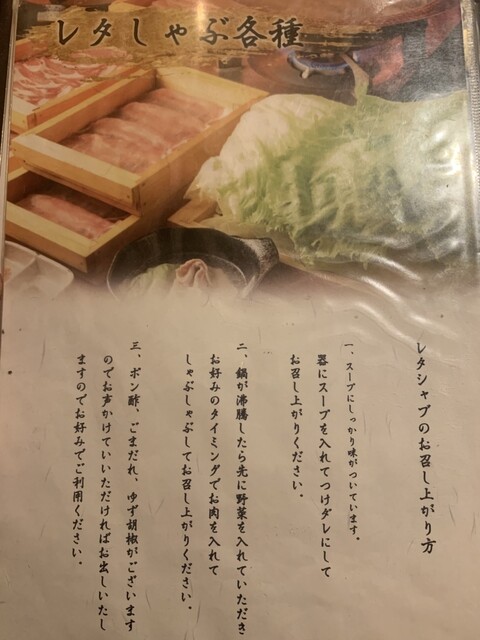 レタしゃぶ各種
レタシャブのお召し上がり方
一、スープにしっかり味がついています。
器にスープを入れてつけダレにして
お召し上がりください。
二、鍋が沸騰したら先に野菜を入れていただき
お好みのタイミングでお肉を入れて
しゃぶしゃぶしてお召し上がりください。
三、ポン酢、ごまだれ、ゆず胡椒がございます
のでお声かけていいただければお出しいたし
ますのでお好みでご利用ください。